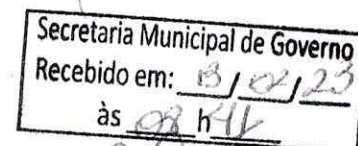 Secretaria Municipal de Governo
Recebido em: 13 / 02 / 23
às 08 h